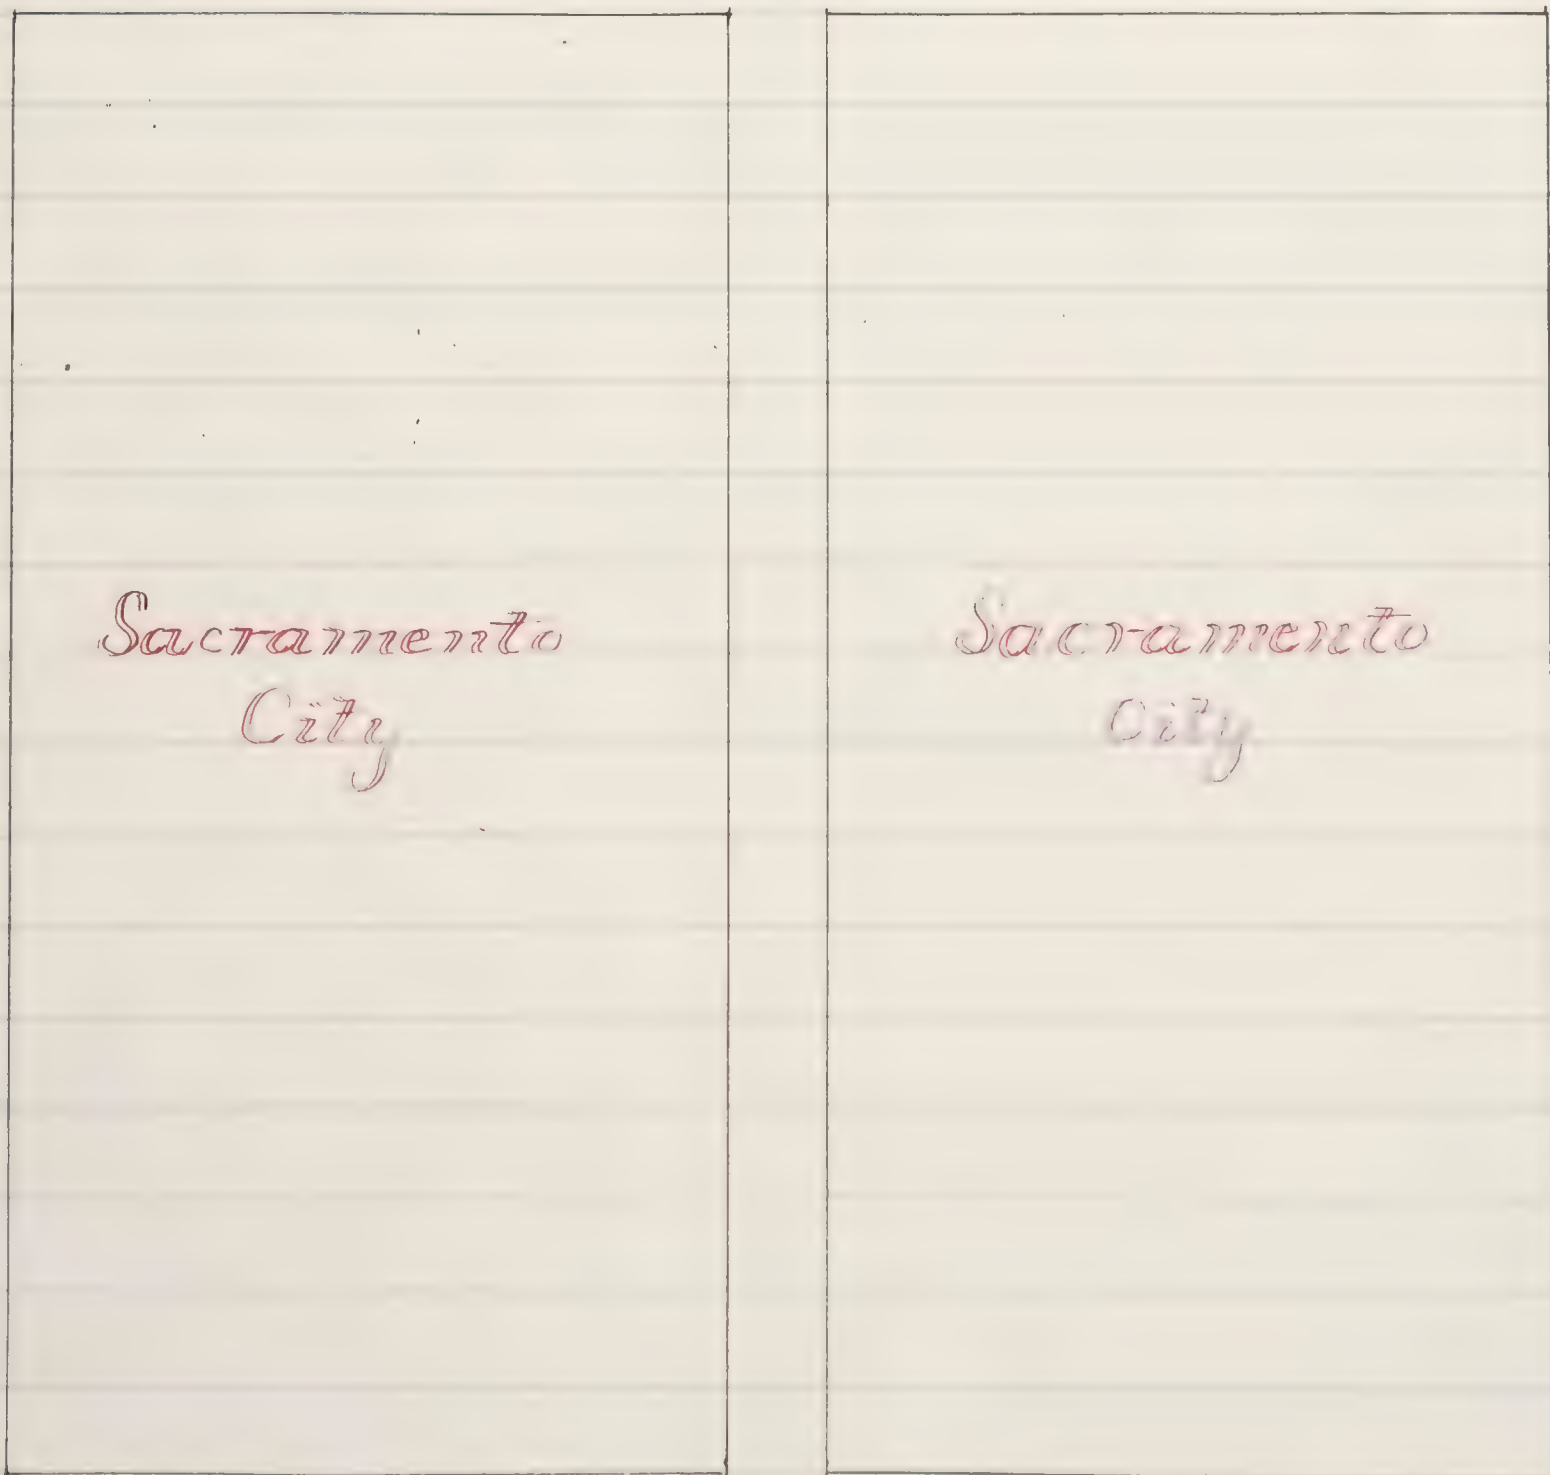 Sacramento
City
Sacramento
City